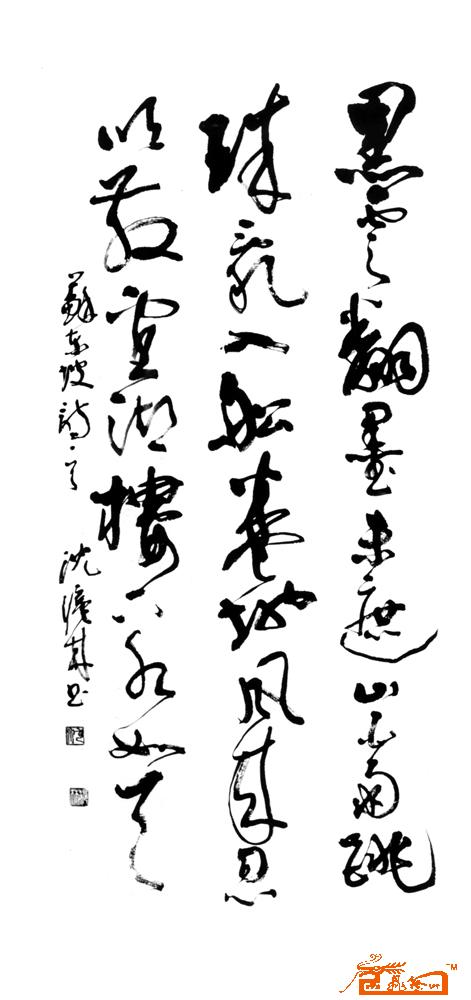 黑雲翻墨未遮山白雨跳
珠亂入船卷地風來忽
吹散望湖樓下水如天
蘇東坡詩一首 沈 書